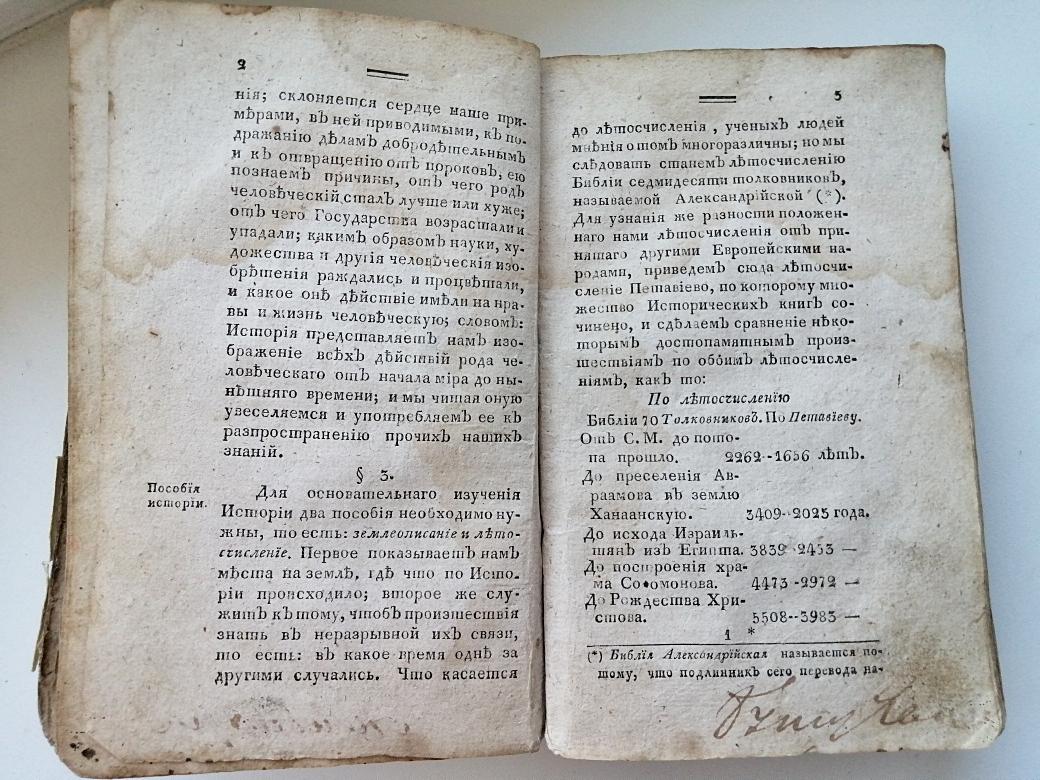 2
нія; склоняется сердце наше при-
мѣрами, въ ней приводимыми, къ по-
дражанію дѣламъ добродѣтельнымъ
и къ отвращенію отъ пороковъ, ею
познаемъ причины, отъ чего родъ
человѣческій сталъ лучше или хуже;
отъ чего Государства возрастали и
упадали; какимъ образомъ науки, ху-
дожества и другія человѣческія изо-
брѣтенія раждались и процвѣтали,
и какое онѣ дѣйствіе имѣли на нра-
вы и жизнь человѣческую; словомъ:
Исторія представляетъ намъ изо-
браженіе всѣхъ дѣйствій рода че-
ловѣческаго отъ начала міра до ны-
нѣшняго времени; и мы читая оную
увеселяемся и употребляемъ ее къ
разпространенію прочихъ нашихъ
знаній.
§ 3.
Пособія
исторіи.
Для основательнаго изученія
Исторіи два пособія необходимо ну-
жны, то есть: землеописаніе и лѣто-
счисленіе. Первое показываетъ намъ
мѣста на землѣ, гдѣ что по Исто-
ріи происходило; второе же слу-
житъ къ тому, чтобъ произшествія
знать въ неразрывной ихъ связи,
то есть: въ какое время однѣ за
другими случались. Что касается
3
до лѣтосчисленія, ученыхъ людей
мнѣнія о томъ многоразличны; но мы
слѣдовать станемъ лѣтосчисленію
Библіи седмидесяти толковниковъ,
называемой Александрійской (*).
Для узнанія же разности положен-
наго нами лѣтосчисленія отъ при-
нятаго другими Европейскими на-
родами, приведемъ сюда лѣтосчи-
сленіе Петавіево, по которому мно-
жество Историческихъ книгъ со-
чинено, и сдѣлаемъ сравненіе нѣко-
торымъ достопамятнымъ произ-
шествіямъ по обоимъ лѣтосчисле-
ніямъ, какъ то:
По лѣтосчисленію
Библіи 70 Толковниковъ. По Петавіеву.
Отъ С. М. до пото-
па прошло. 2262--1656 лѣтъ.
До преселенія Ав-
раамова въ землю
Ханаанскую. 3409--2025 года.
До исхода Израиль-
тянъ изъ Египта. 3839--2453 —
До построенія хра-
ма Соломонова. 4473--2972 —
До Рождества Хри-
стова. 5508--3983 —
1 *
(*) Библія Александрійская называется по-
тому, что подлинникъ сего перевода на-